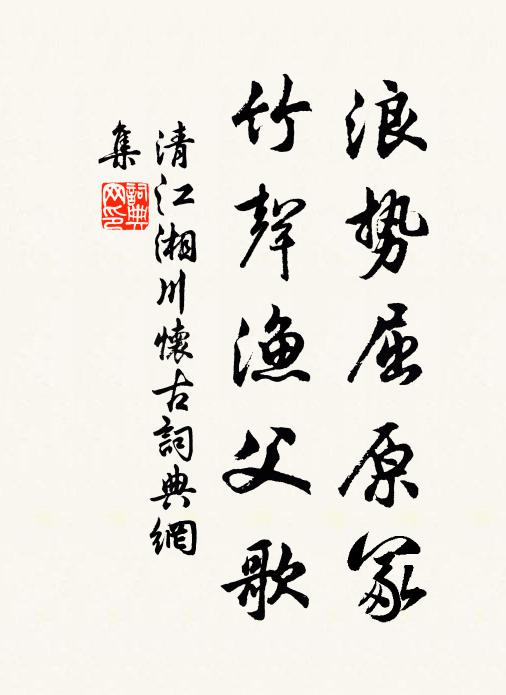 浪势屈原冢
竹聲漁父歌
清江湘川懷古詞典網
集
詞典
网印